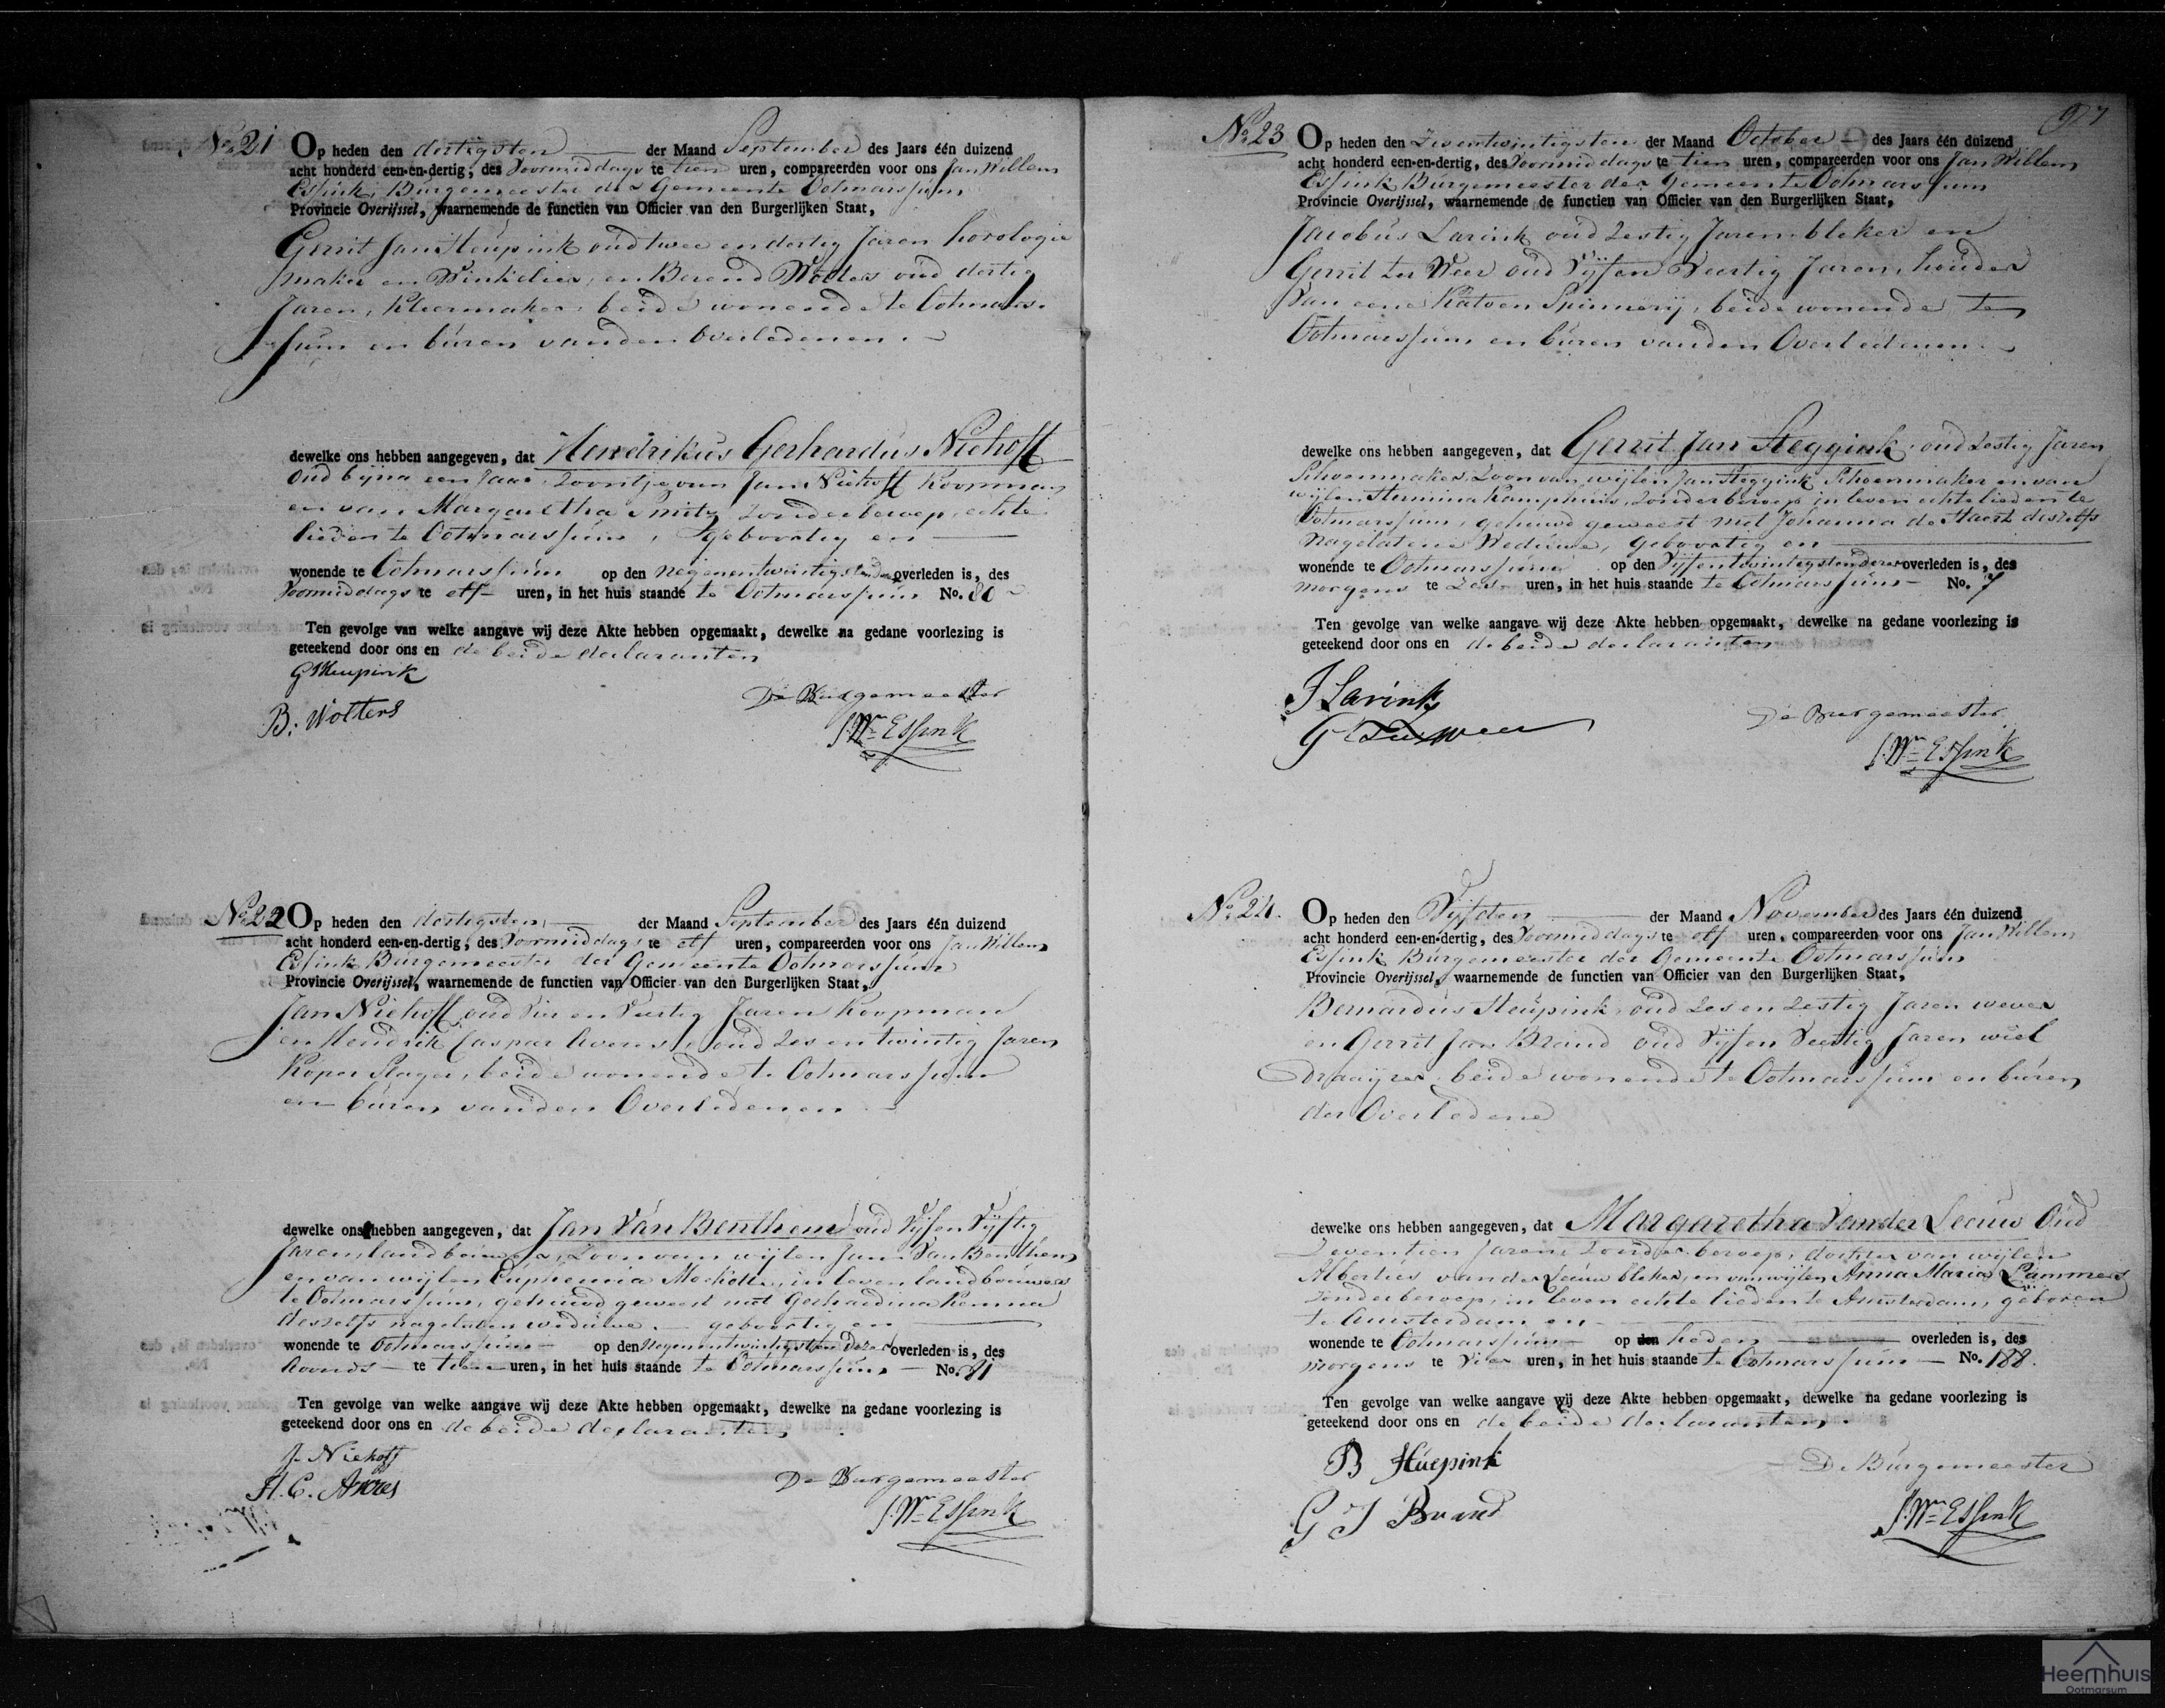 No 21 Op heden den dertigsten der Maand September des Jaars één duizend
acht honderd een-en-dertig, des Voormiddags te tien uren, compareerden voor ons Jan Willem
Essink, Burgemeester der Gemeente Ootmarssum
Provincie Overijssel, waarnemende de functien van Officier van den Burgerlijken Staat,
Gerrit Jan Heupink oud twee en dertig Jaren horologie
maker en Winkelier, en Berend Wolters oud dertig
Jaren, Kleermaker, beide wonende te Ootmars-
sum en buren van den Overledenen.
dewelke ons hebben aangegeven, dat Hendrikus Gerhardus Niehoff
Oud bijna een Jaar Zoontje van Jan Niehoff Koopman
en van Margaretha Smitz, zonder beroep, echte
lieden te Ootmarssum, geboortig en
wonende te Ootmarssum op den negenentwintigsten dezer overleden is, des
Voormiddags te elf uren, in het huis staande te Ootmarssum No. 80
Ten gevolge van welke aangave wij deze Akte hebben opgemaakt, dewelke na gedane voorlezing is
geteekend door ons en de beide declaranten
GJHeupink
B: Wolters
De Burgemeester
J.Wm Essink
No 22 Op heden den dertigsten der Maand September des Jaars één duizend
acht honderd een-en-dertig, des Voormiddags te elf uren, compareerden voor ons Jan Willem
Essink Burgemeester der Gemeente Ootmarssum
Provincie Overijssel, waarnemende de functien van Officier van den Burgerlijken Staat,
Jan Niehoff oud Vier en Veertig Jaren Koopman
en Hendrik Caspar oud zes en twintig Jaren
Koper Slager, beide wonende te Ootmarssum
en buren van den Overledenen
dewelke ons hebben aangegeven, dat Jan Van Benthem oud Vijf en Vijftig
Jaren, landbouwer, Zoon van wijlen Jan Van Benthem
en van wijlen Euphemia, in leven landbouwers
te Ootmarssum, gehuwd geweest met Gerhardina Remma
deszelfs nagelaten weduwe. geboortig en
wonende te Ootmarssum op den Negenentwintigsten dezer overleden is, des
Avonds te tien uren, in het huis staande te Ootmarssum, No. 81
Ten gevolge van welke aangave wij deze Akte hebben opgemaakt, dewelke na gedane voorlezing is
geteekend door ons en de beide declaranten
J. Niehoff
H. C.
De Burgemeester
J.Wm Essink
97
No 23 Op heden den Zevenentwintigsten der Maand October des Jaars één duizend
acht honderd een-en-dertig, des Voormiddags te tien uren, compareerden voor ons Jan Willem
Essink Burgemeester der Gemeente Ootmarssum
Provincie Overijssel, waarnemende de functien van Officier van den Burgerlijken Staat,
Jacobus Larink oud Zestig Jaren bleker en
Gerrit ter Weer oud Vijf en Veertig Jaren, houder
Van eene Katoen Spinnerij, beide wonende te
Ootmarssum en buren van den Overledenen.
dewelke ons hebben aangegeven, dat Gerrit Jan Steggink, oud Zestig Jaren
Schoenmaker, Zoon van wijlen Jan Steggink Schoenmaker en van
wijlen Hermina Kamphuis, zonder beroep in leven echtelieden te
Ootmarssum, gehuwd geweest met Johanna de deszelfs
Nagelatene Weduwe, geboortig en
wonende te Ootmarssum op den Vijfentwintigsten dezer overleden is, des
morgens te Zes uren, in het huis staande te Ootmarssum No. 7
Ten gevolge van welke aangave wij deze Akte hebben opgemaakt, dewelke na gedane voorlezing is
geteekend door ons en de beide declaranten
J Larink
G ter weer
De Burgemeester
J.Wm Essink
No 24. Op heden den Vijfden der Maand November des Jaars één duizend
acht honderd een-en-dertig, des Voormiddags te elf uren, compareerden voor ons Jan Willem
Essink Burgemeester der Gemeente Ootmarssum
Provincie Overijssel, waarnemende de functien van Officier van den Burgerlijken Staat,
Bernardus Heupink, oud Zes en Zestig Jaren wever
en Gerrit Jan Brand oud Vijf en Veertig Jaren wiel
draaijer, beide wonende te Ootmarssum en buren
der Overledene
dewelke ons hebben aangegeven, dat Margaretha Van der Leeuw Oud
Zeventien Jaren, zonder beroep, dochter van wijlen
Albertus van der Leeuw bleker, en van wijlen Anna Maria Lammers
zonder beroep, in leven echte lieden te Amsterdam, geboren
te Amsterdam en
wonende te Ootmarssum op den heden overleden is, des
morgens te Vier uren, in het huis staande te Ootmarssum No. 188.
Ten gevolge van welke aangave wij deze Akte hebben opgemaakt, dewelke na gedane voorlezing is
geteekend door ons en de beide declaranten.
B Huepink
G J Brand
De Burgemeester
J.Wm Essink
Heemhuis
Ootmarsum